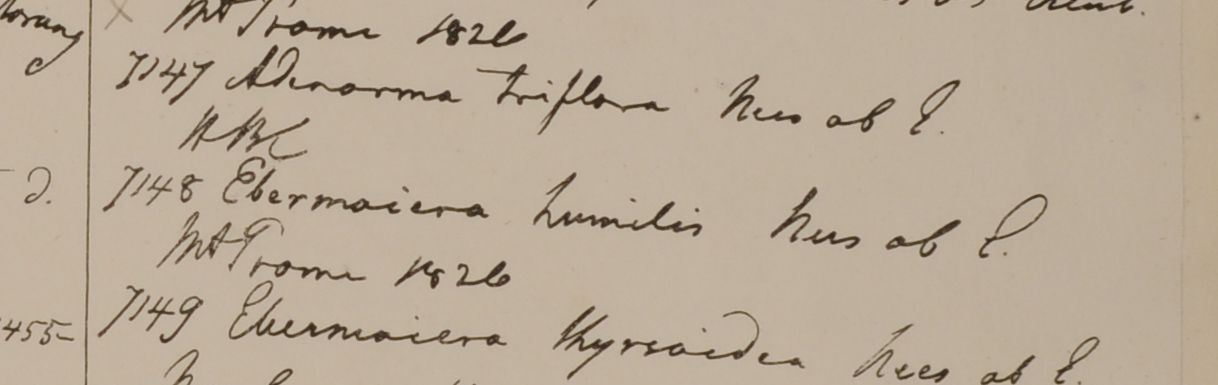 Mt Prome 1826
7147 Adenosma triflora Nees ab E.
HBC
7148 Ebermaiera humilis Nees ab E.
d.
Mt Prome 1826
7149 Ebermaiera thyrsoidea Nees ab E.
455-